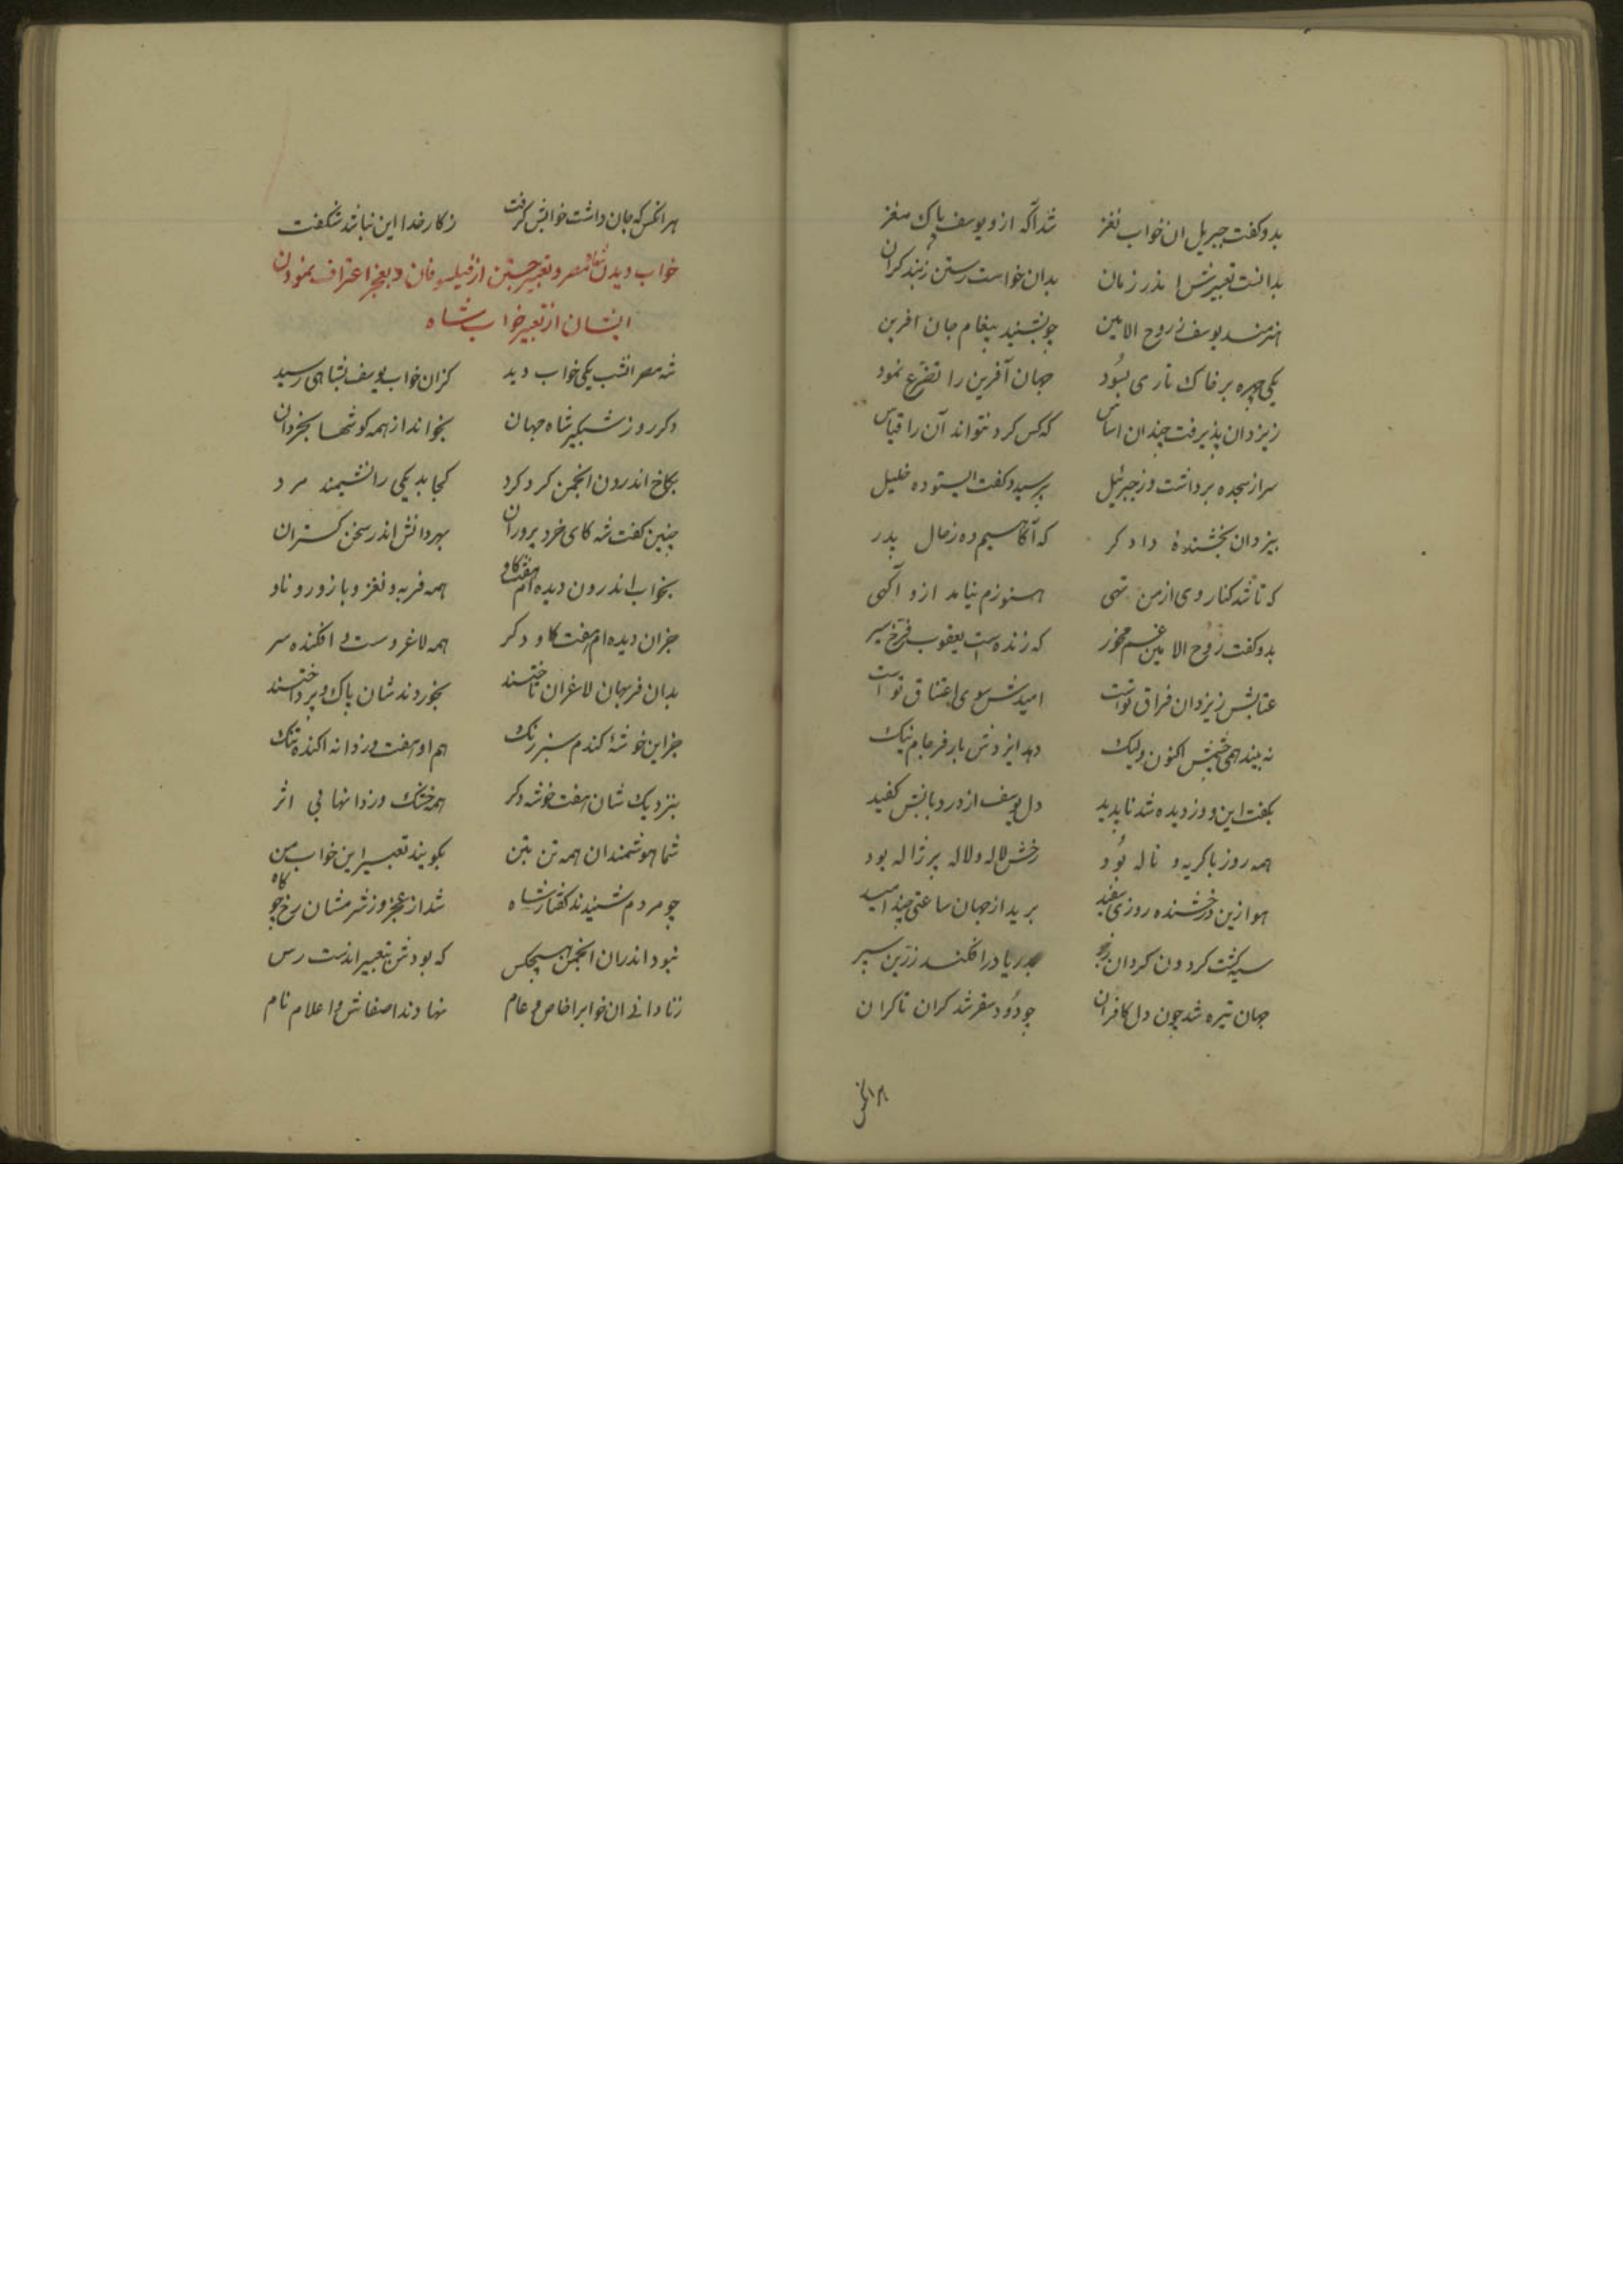 بدو گفت جبریل ان خواب نغز شد آگه ازو یوسف پاک مغز
بدانست تعبیرش اندر زمان بدان خواست رستن ز بند کران
هنرمند یوسف ز روح الامین چو بشنید پیغام جان افرین
یکی چهره بر خاک تاری بسود جهان آفرین را تضرع نمود
ز یزدان پذیرفت چندان اساس که کس کرد نتواند آن را قیاس
سر از سجده برداشت وز جبرئیل بپرسید و گفت ای ستوده خلیل
بیزدان بخشندهٔ دادکر که آگاهیم ده ز حال پدر
که تا شد کنار وی از من تهی هنوزم نیامد ازو آگهی
بدو گفت روح الامین غم مخور که زنده ست یعقوب فرخ سیر
عتابش ز یزدان فراق توست امیدش سوی اعتناق تو است
نه بیند همی چشمش اکنون ولیک دهد ایزدش بار فرجام نیک
بگفت این و وز دیده شد ناپدید دل یوسف از درد بابش کفید
همه روز با کریه و ناله بود رخش لاله و لاله پر ژاله بود
هوا زین درخشنده روزی سفید برید از جهان ساعتی چند امید
سیه گشت کردون کردان بدریا در افکند زرین سپر
جهان تیره شد چون دل کافران چو دود سقر شد کران تا کران
هر انکس که جان داشت خوابش گرفت ز کار خدا این نباشد شگفت
خواب دیدن شاه مصر و تعبیر جستن از فیلسوفان و بعجز اعتراف نمودن
ایشان از تعبیر خواب شاه
شه مصر انشب یکی خواب دید کزان خواب یوسف بشاهی رسید
دکر روز شبگیر شاه جهان بخواند از همه کوشها بخردان
بکاخ اندرون انجمن کرد کرد کجا بد یکی دانشیمند مرد
چنین گفت شه کای خرد پروران بهر دانش اندر سخن گستران
بخواب اندرون دیده ام هفت گاو همه فربه و نغز و با زور و تاو
جزان دیده ام هفت کاو دکر همه لاغر و سست و افکنده سر
بدان فربهان لاغران تاختند بخوردند شان پاک و پرداختند
جز این خوشهٔ کندم سبز رنگ هم او هفت وز دانه اکنده تنگ
بنزدیک شان هفت خوشه دکر همه خشک وز دانها بی اثر
شما هوشمندان همه تن بتن بگویند تعبیر این خواب من
چو مردم شنیدند گفتار شاه شد از عجز وز شرمشان رخ چو کاه
نبود اندران انجمن هیچکس که بودش بتعبیر ان دست رس
ز نادانی ان خواب را خاص و عام نهادند اضغاث و احلام نام